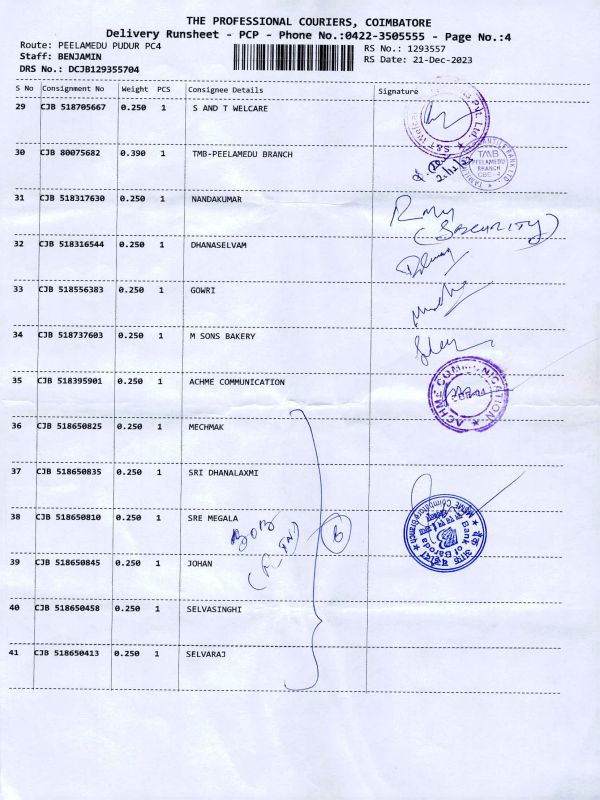 THE PROFESSIONAL COURIERS, COIMBATORE
Delivery Runsheet - PCP - Phone No.:0422-3505555 - Page No.:4
Route: PEELAMEDU PUDUR PC4
RS No.: 1293557
Staff: BENJAMIN
RS Date: 21-Dec-2023
DRS No.: DCJB129355704
S No Consignment No Weight PCS Consignee Details Signature
29 CJB 518705667 0.250 1 S AND T WELCARE
30 CJB 80075682 0.390 1 TMB-PEELAMEDU BRANCH
TMB
PEELAMEDU
BRANCH
31 CJB 518317630 0.250 1 NANDAKUMAR
(SECURITY)
32 CJB 518316544 0.250 1 DHANASELVAM
33 CJB 518556383 0.250 1 GOWRI
34 CJB 518737603 0.250 1 M SONS BAKERY
35 CJB 518395901 0.250 1 ACHME COMMUNICATION
ACHME COMMUNICATION
36 CJB 518650825 0.250 1 MECHMAK
37 CJB 518650835 0.250 1 SRI DHANALAXMI
38 CJB 518650810 0.250 1 SRE MEGALA
BOB
6
Bank of Baroda
39 CJB 518650845 0.250 1 JOHAN
40 CJB 518650458 0.250 1 SELVASINGHI
41 CJB 518650413 0.250 1 SELVARAJ